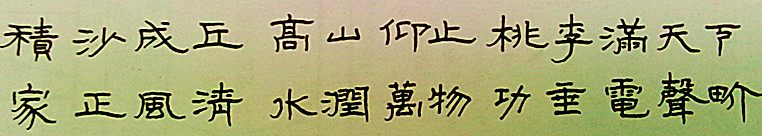 積沙成丘 髙山仰止 桃李滿天下
家正風清 水潤萬物 功垂電聲畍